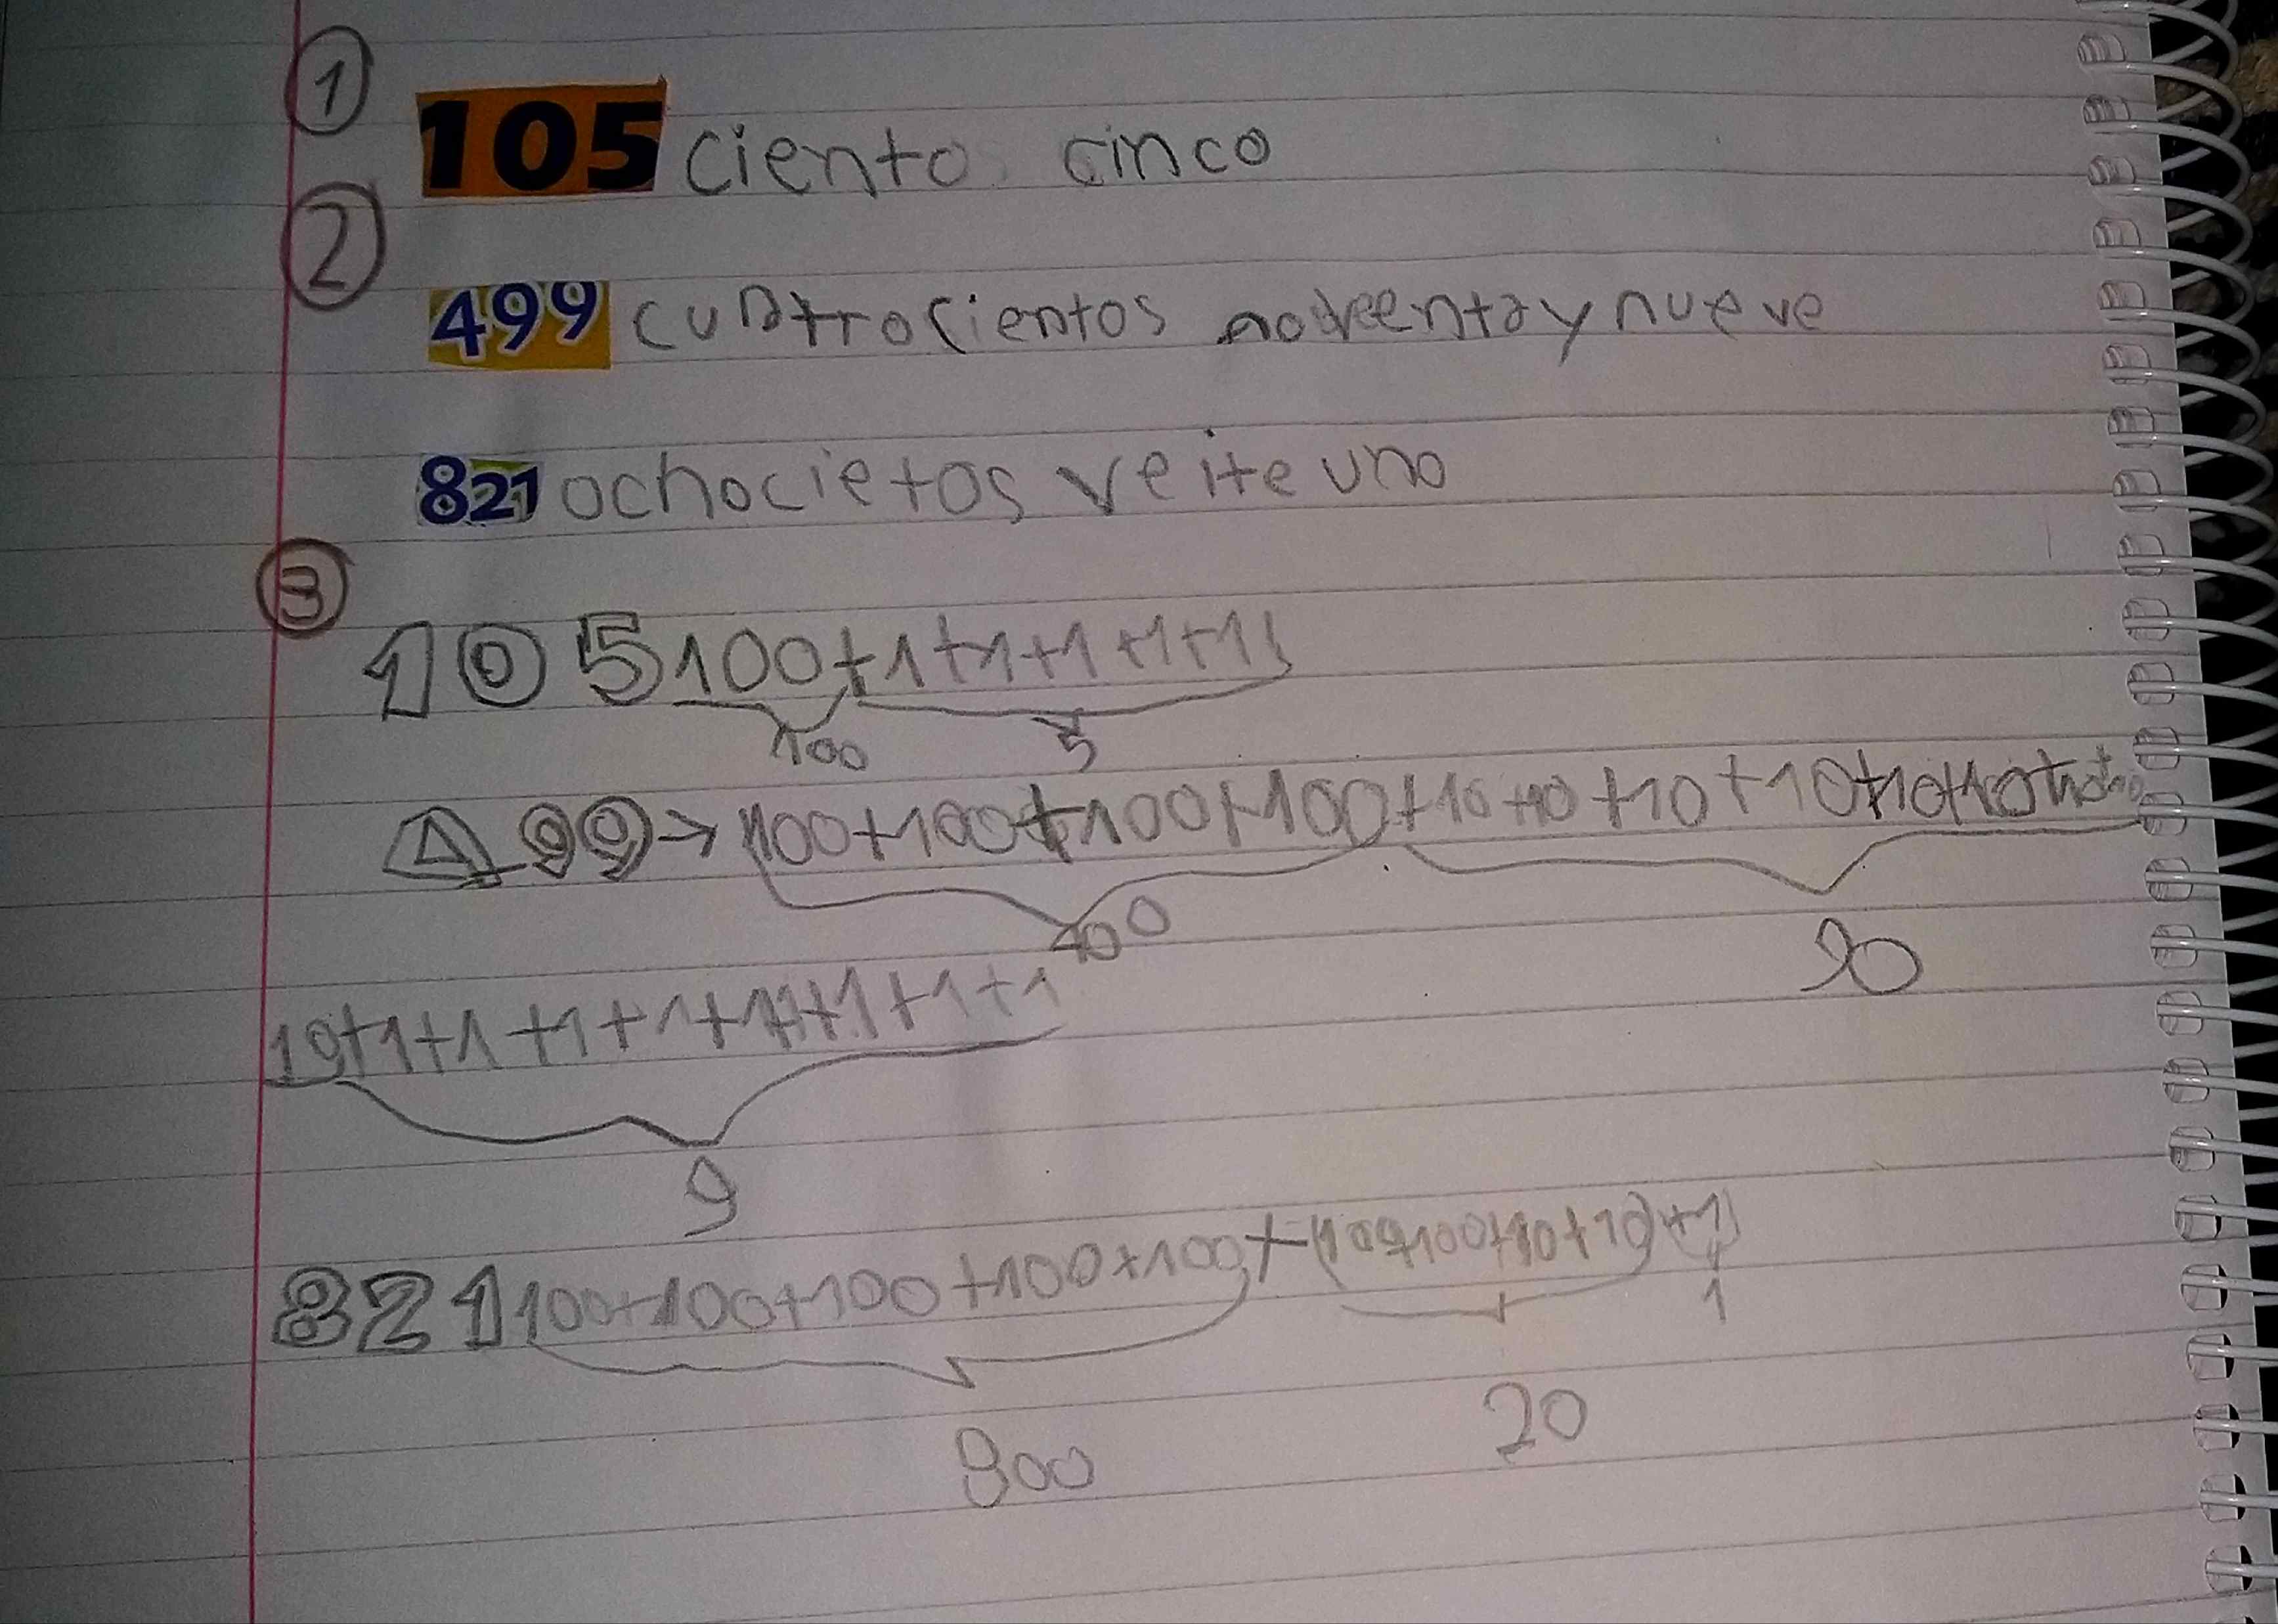 1
105 ciento cinco
2
499 cuatrocientos noventa y nueve
821 ochocietos veite uno
3
105 100+1+1+1+1+1
100 5
499→100+100+100+100+10+10+10+10+10+10+10+10
400 90
10+1+1+1+1+1+1+1+1+1
9
821 100+100+100+100+100+(100+100+10+10)+1
1
800 20